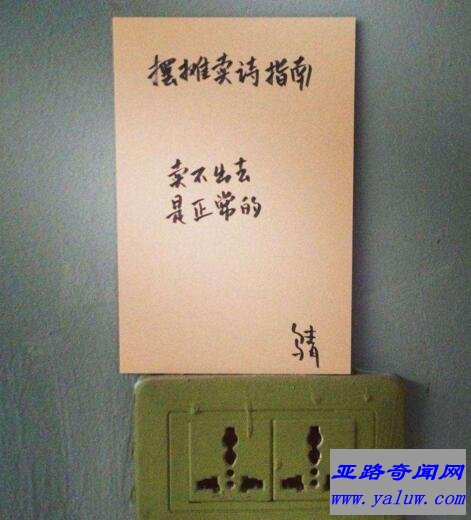 摆摊卖诗指南
卖不出去
是正常的
亚路奇闻网
www.yaluw.com